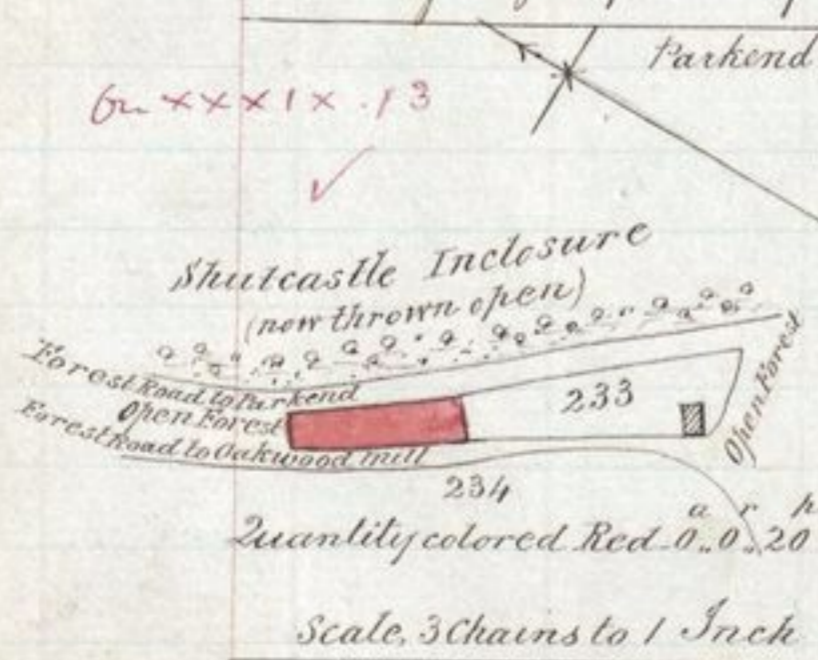 Parkend
XXXIX .13
Shutcastle Inclosure
(now thrown open)
Forest Road to Parkend
Open Forest
Forest Road to Oakwood Mill
233
Open Forest
234
a r p
Quantity colored Red 0.. 0.. 20
Scale, 3 Chains to 1 Inch